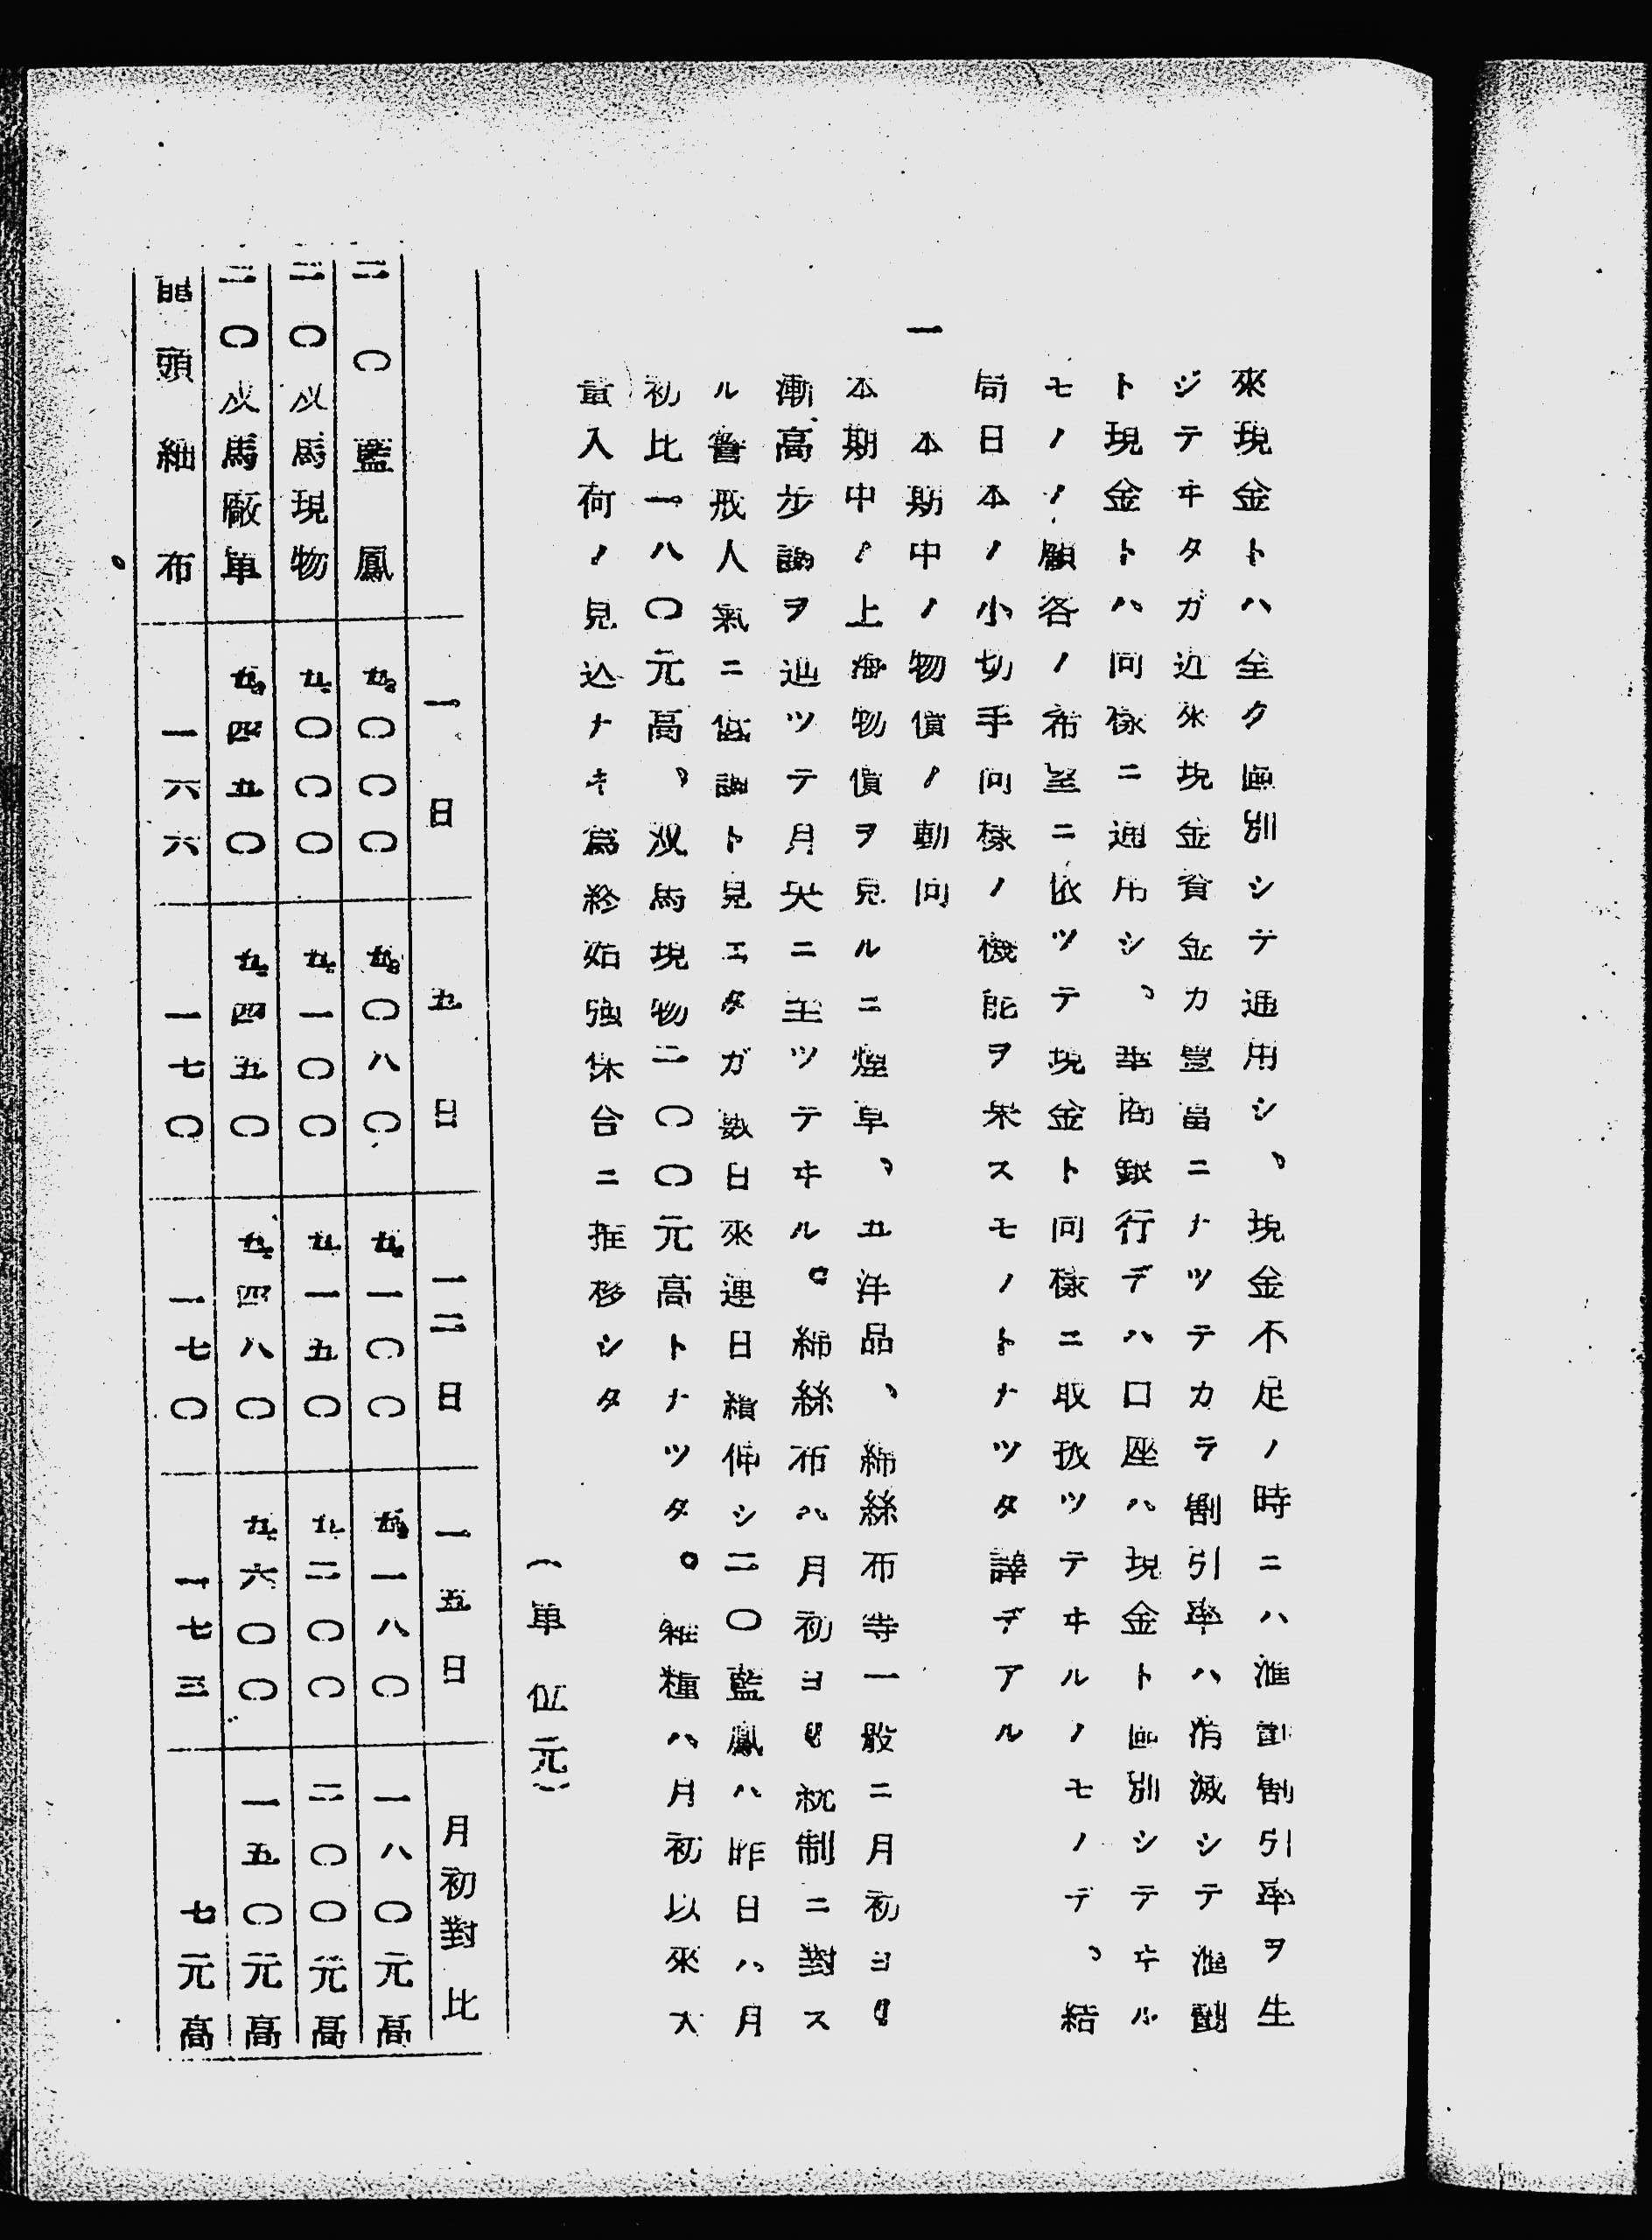 來現金トハ全ク區別シテ通用シ、現金不足ノ時ニハ滙劃割引率ヲ生
ジテヰタガ近來現金資金カ豊富ニナツテカラ割引率ハ消滅シテ滙劃
ト現金トハ同樣ニ通用シ、華商銀行デハ口座ハ現金ト區別シテヰル
モノノ顧客ノ希望ニ依ツテ現金ト同樣ニ取扱ツテヰルノモノデ、結
局日本ノ小切手同樣ノ機能ヲ果スモノトナツタ譯デアル
一 本期中ノ物價ノ動向
本期中ノ上海物價ヲ見ルニ煙草、五洋品、綿絲布等一般ニ月初ヨリ
漸高步調ヲ辿ツテ月央ニ至ツテヰル。綿絲布ハ月初ヨリ統制ニ對ス
ル警戒人氣ニ低調ト見エタガ數日來連日續伸シ二〇藍鳳ハ昨日ハ月
初比一八〇元高、双馬現物二〇〇元高トナツタ。雜糧ハ月初以來大
量入荷ノ見込ナキ爲終始強保合ニ推移シタ
(單位元)
一日 五日 一二日 一五日 月初對比
二〇藍鳳 五、〇〇〇 五、〇八〇 五、一〇〇 五、一八〇 一八〇元高
二〇双馬現物 五、〇〇〇 五、一〇〇 五、一五〇 五、二〇〇 二〇〇元高
二〇双馬廠單 五、四五〇 五、四五〇 五、四八〇 五、六〇〇 一五〇元高
頭細布 一六六 一七〇 一七〇 一七三 七元高